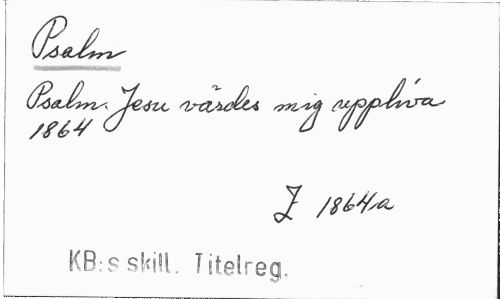 Psalm
Psalm. Jesu värdes mig uppliva
1864
J 1864a
KB:s skill. Titelreg.